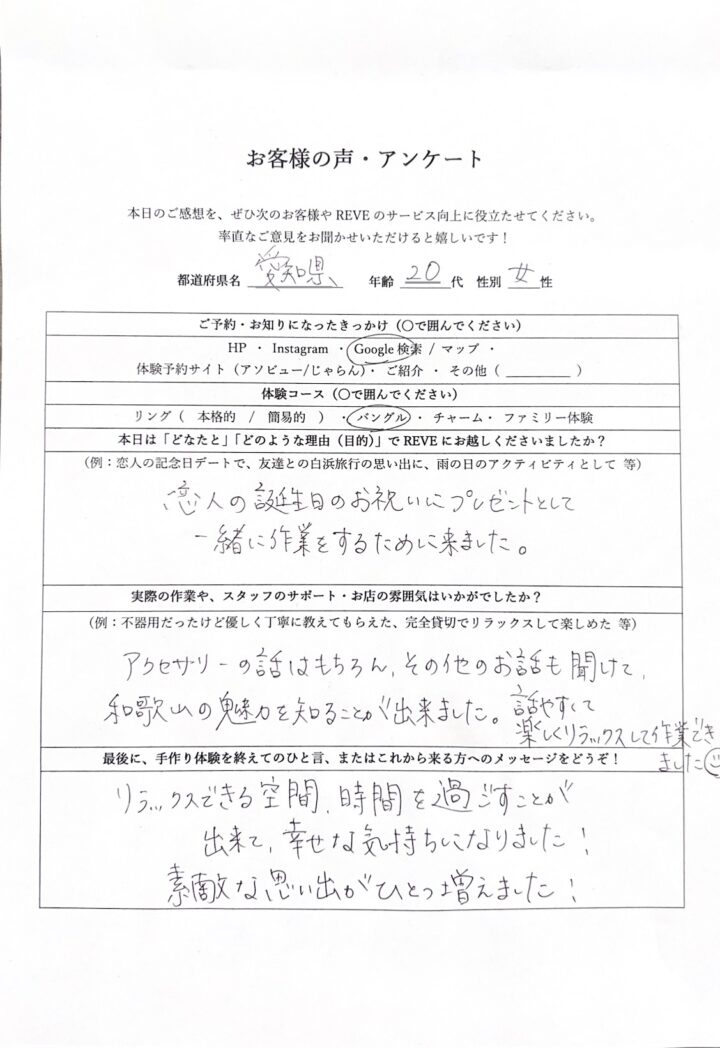 お客様の声・アンケート
本日のご感想を、ぜひ次のお客様や REVE のサービス向上に役立たせてください。
率直なご意見をお聞かせいただけると嬉しいです！
都道府県名 愛知県 年齢 20 代 性別 女 性
ご予約・お知りになったきっかけ（〇で囲んでください）
HP ・ Instagram ・ Google 検索 / マップ ・
体験予約サイト（アソビュー/じゃらん）・ ご紹介 ・ その他（ ________ ）
体験コース（〇で囲んでください）
リング（ 本格的 / 簡易的 ） ・ バングル ・ チャーム・ ファミリー体験
本日は「どなたと」「どのような理由（目的）」で REVE にお越しくださいましたか？
（例：恋人の記念日デートで、友達との白浜旅行の思い出に、雨の日のアクティビティとして 等）
恋人の誕生日のお祝いにプレゼントとして
一緒に作業をするために来ました。
実際の作業や、スタッフのサポート・お店の雰囲気はいかがでしたか？
（例：不器用だったけど優しく丁寧に教えてもらえた、完全貸切でリラックスして楽しめた 等）
アクセサリーの話はもちろん、その他のお話も聞けて、
和歌山の魅力を知ることが出来ました。話やすくて
楽しくリラックスして作業でき
ました
最後に、手作り体験を終えてのひと言、またはこれから来る方へのメッセージをどうぞ！
リラックスできる空間、時間を過ごすことが
出来て、幸せな気持ちになりました！
素敵な思い出がひとつ増えました！